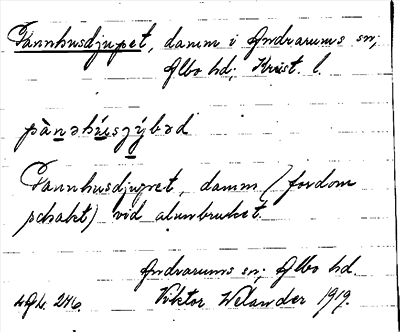 Pannhusdjupet, damm i Andrarums sn;
Albo hd; Krist. l.
pànəhúsʒýbəd
Pannhusdjupet, damm (fordom
schakt) vid alunbruket.
Andrarums sn; Albo hd.
Viktor Welander 1919.